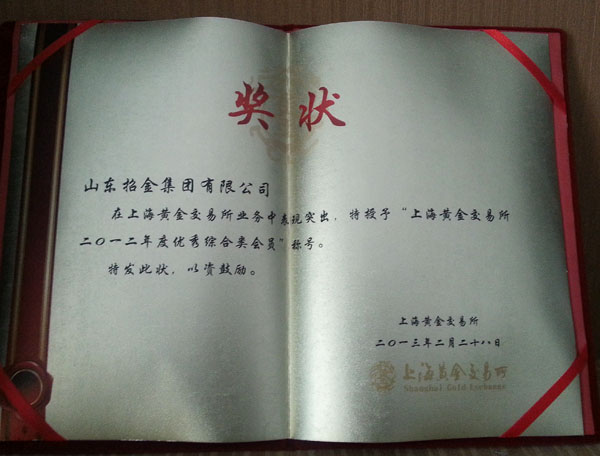 奖状
山东招金集团有限公司
在上海黄金交易所业务中表现突出，特授予“上海黄金交易所
二〇一二年度优秀综合类会员”称号。
特发此状，以资鼓励。
上海黄金交易所
二〇一三年二月二十八日
上海黄金交易所
Shanghai Gold Exchange